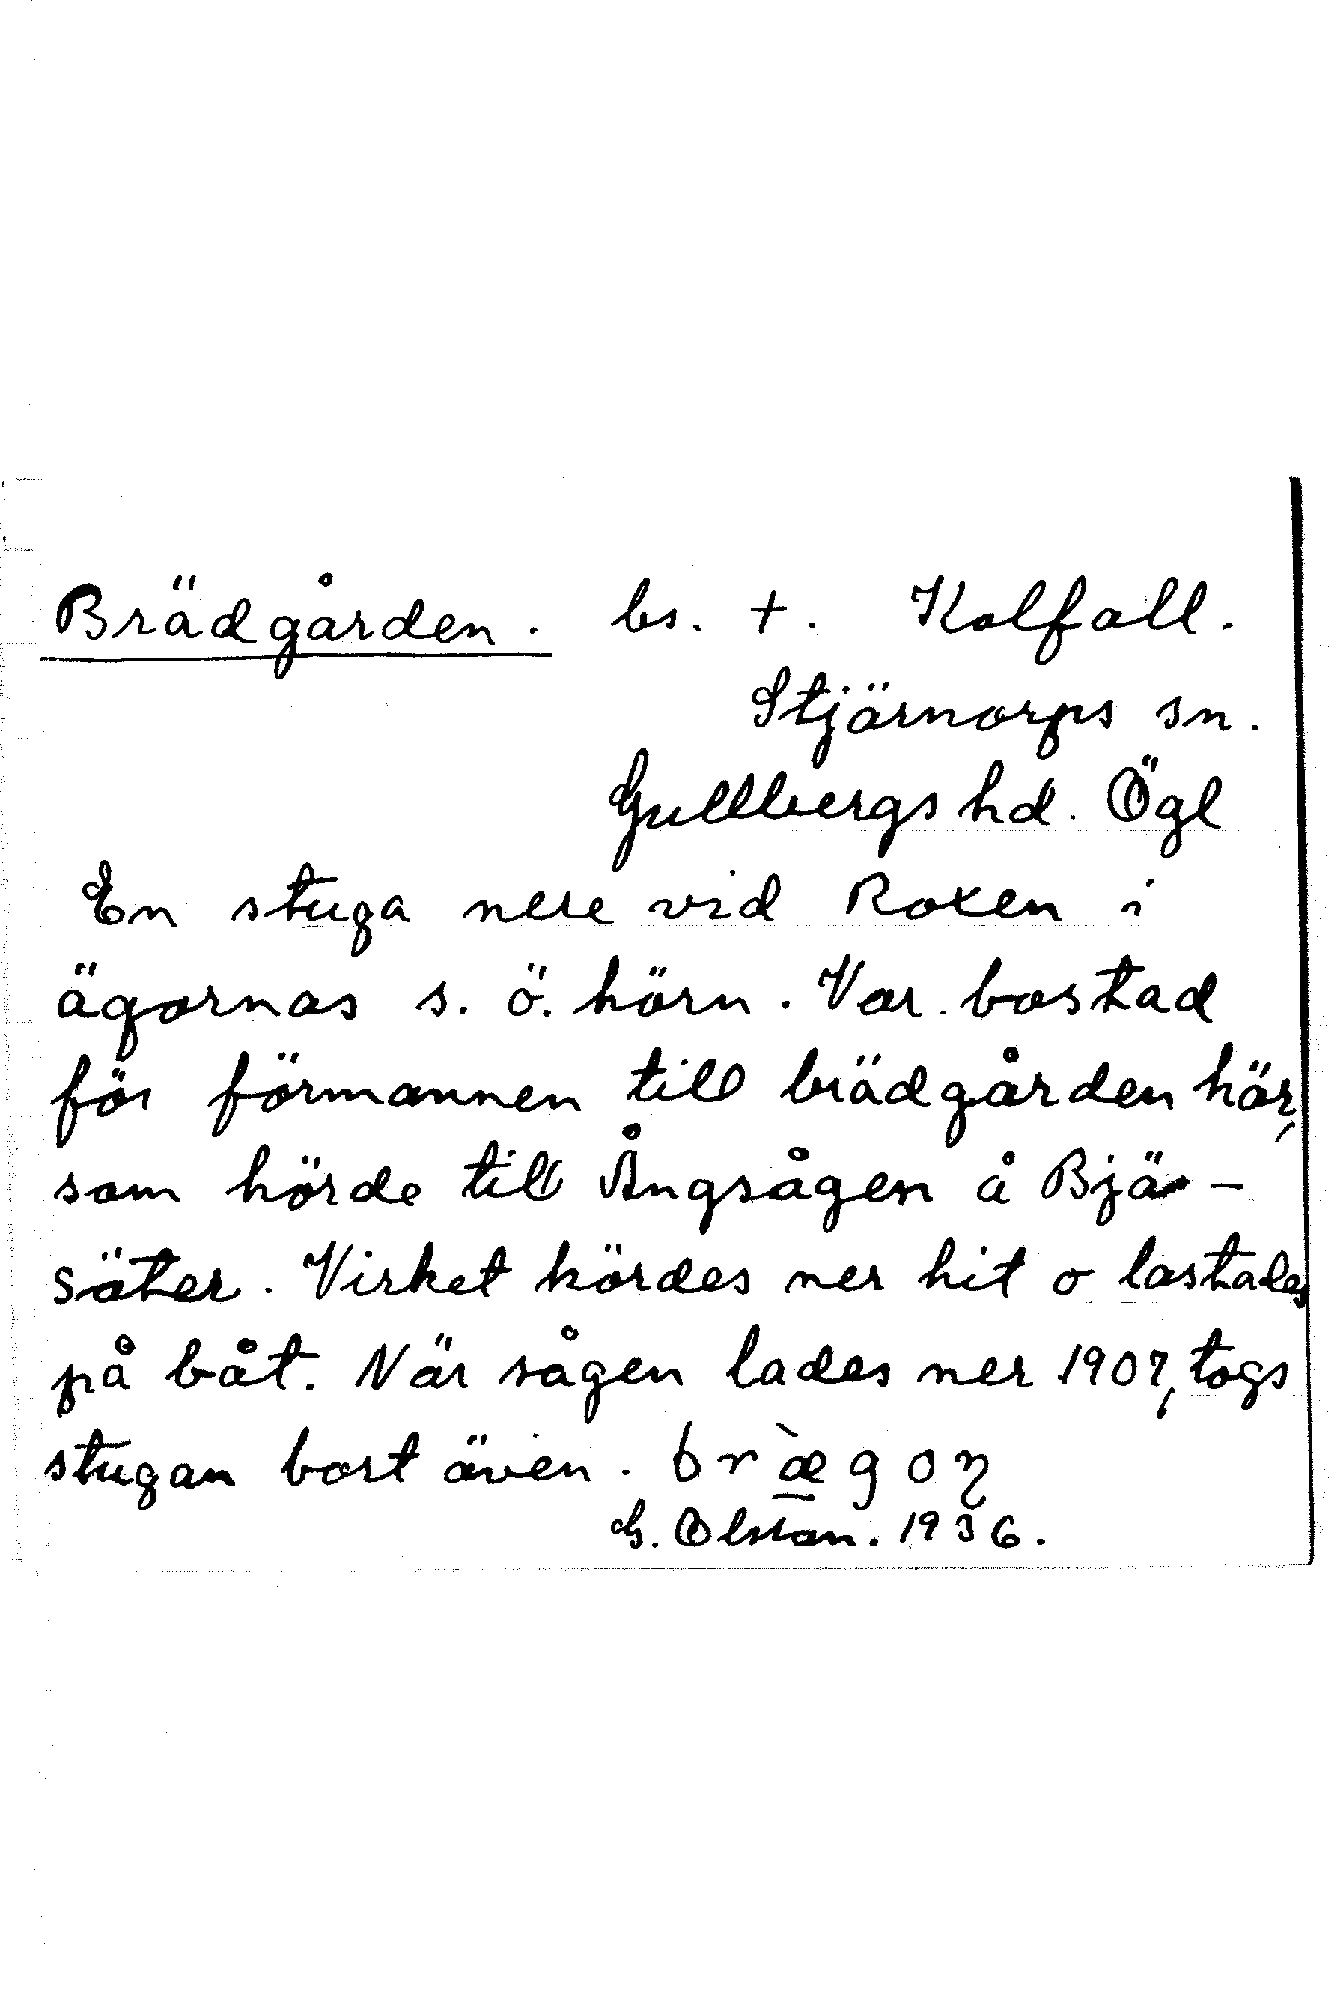 Brädgården. bs. +. Kolfall.
Stjärnorps sn.
Gullbergs hd. Ögl
En stuga nere vid Roxen i
ägornas s. ö. hörn. Var bostad
för förmannen till brädgården här,
som hörde till Ångsågen å Bjä-
säter. Virket kördes ner hit o lastades
på båt. När sågen lades ner 1907, togs
stugan bort även. bræ̀goɳ
G. Olstan. 1936.